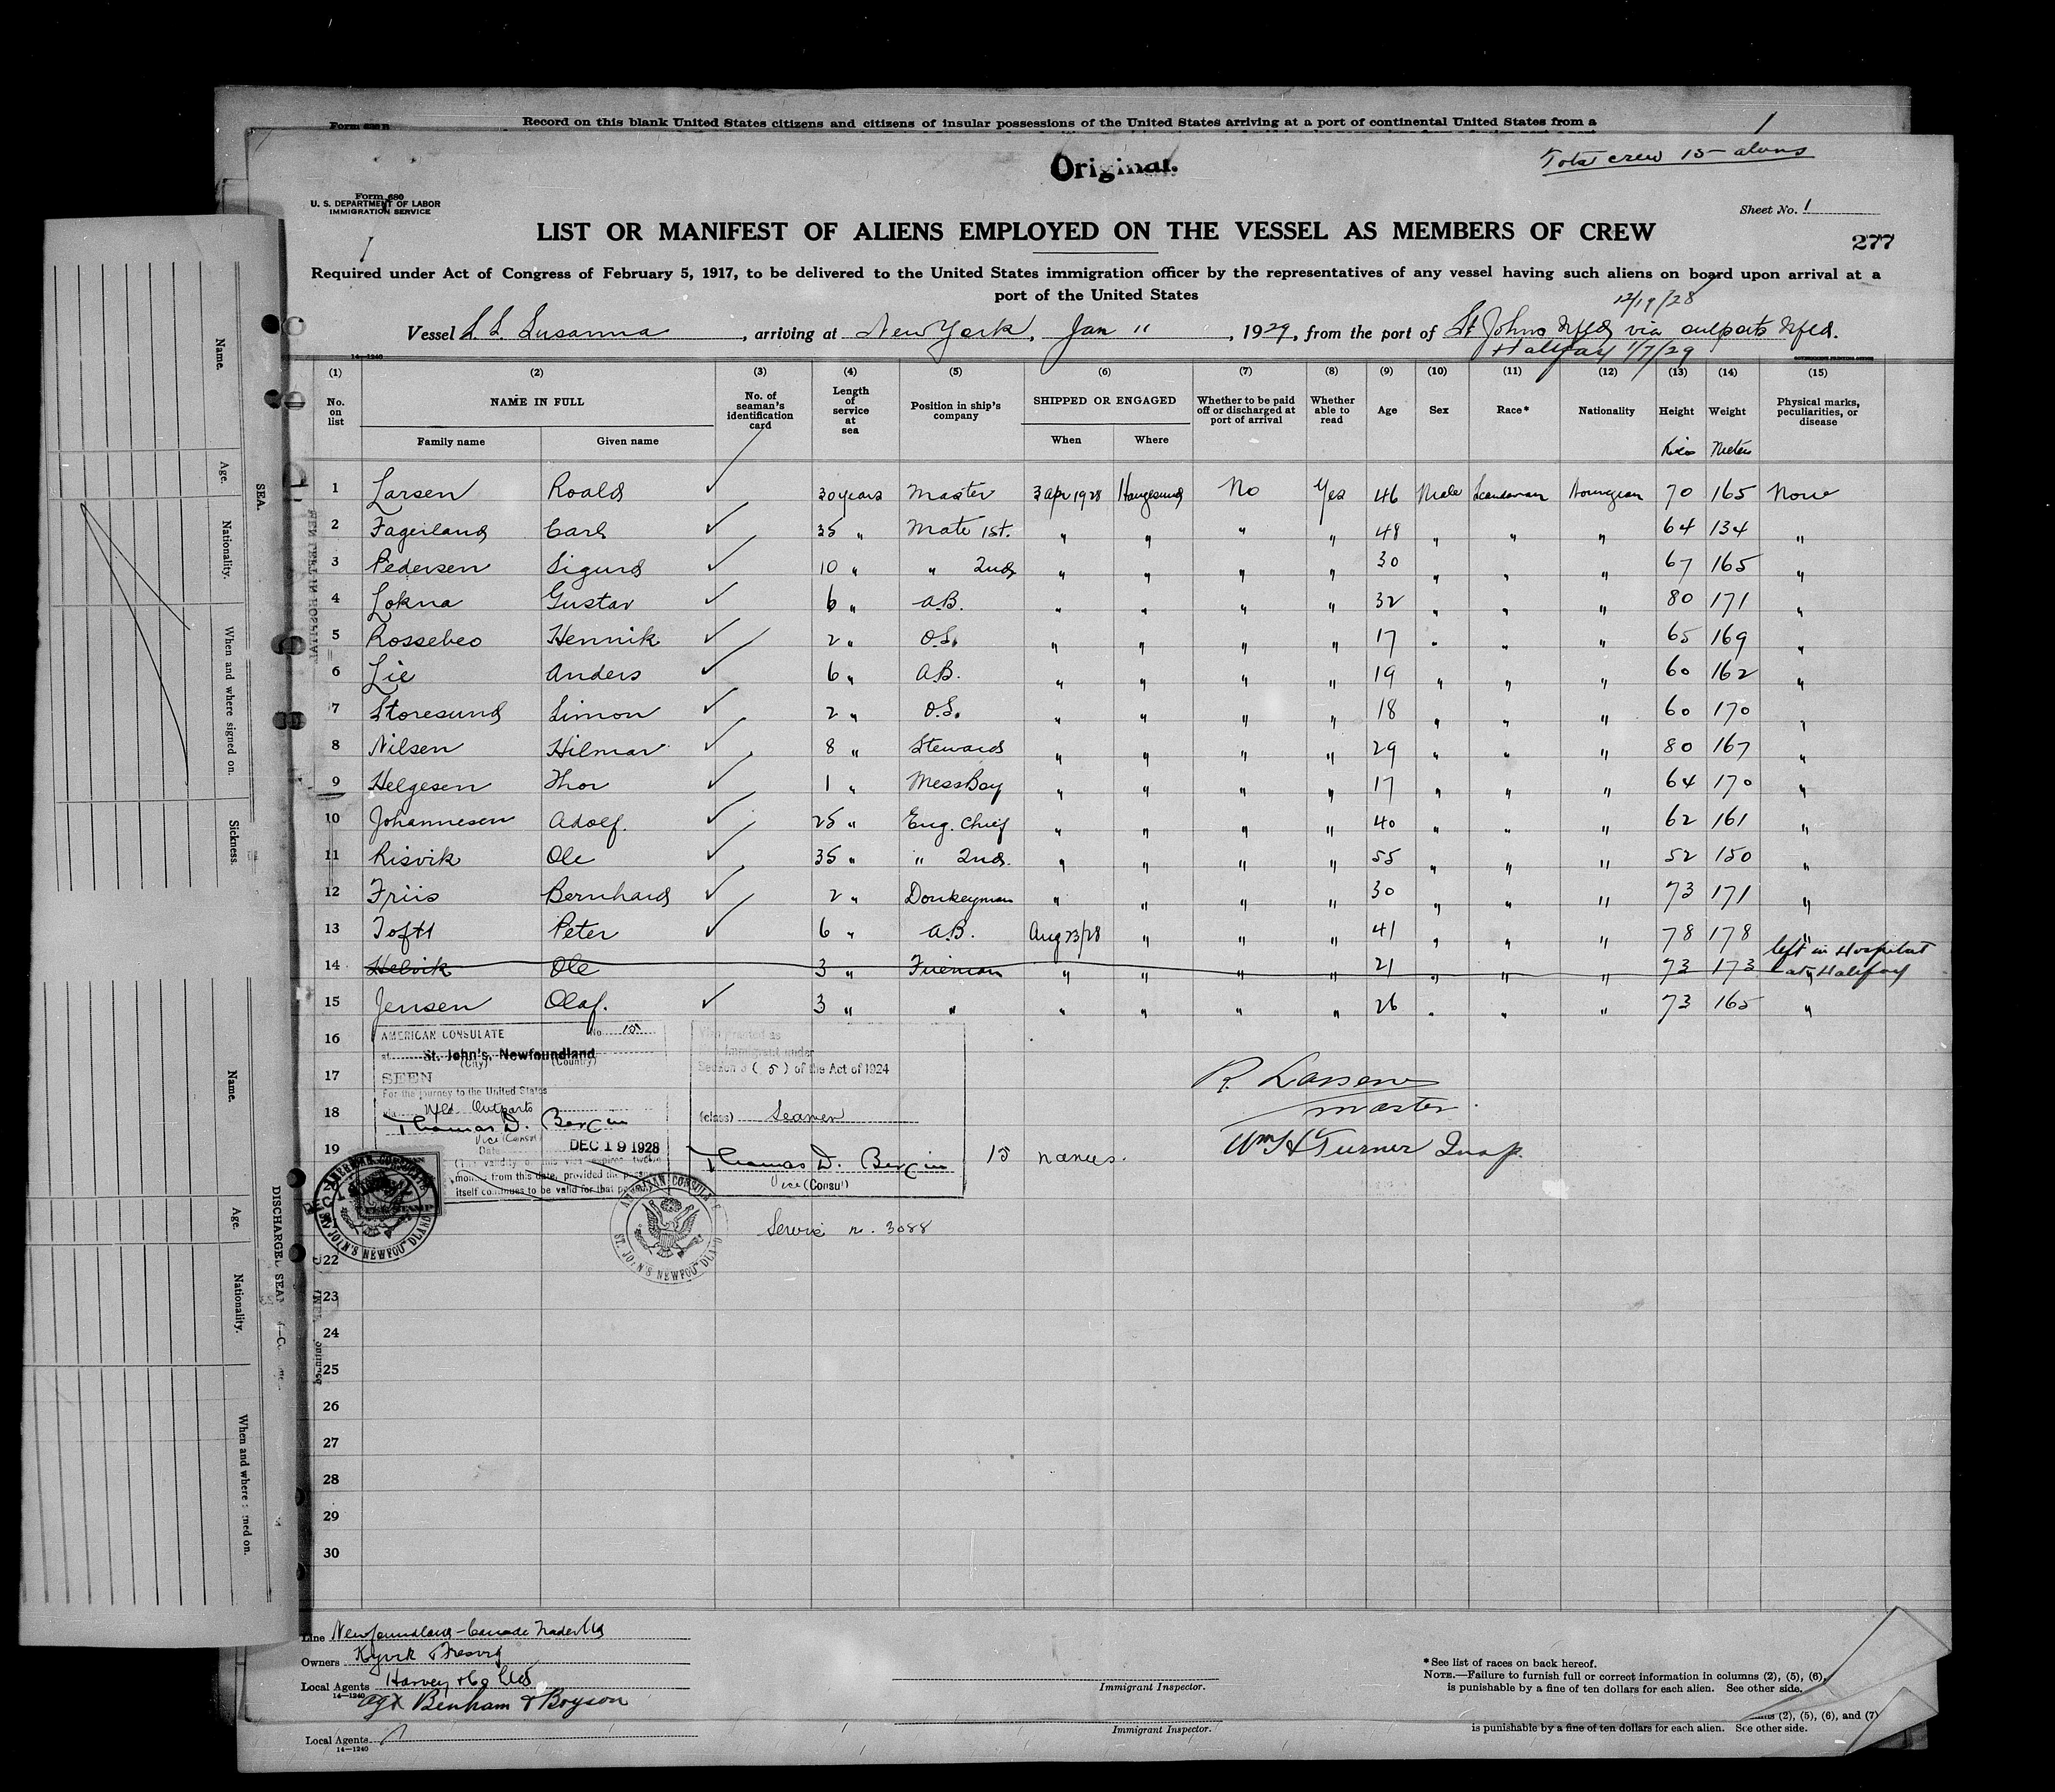 Form 630 B
Record on this blank United States citizens and citizens of insular possessions of the United States arriving at a port of continental United States from a
1
Total crew 15
Original.
Form 680
U. S. DEPARTMENT OF LABOR
IMMIGRATION SERVICE
Sheet No. 1
LIST OR MANIFEST OF ALIENS EMPLOYED ON THE VESSEL AS MEMBERS OF CREW
277
Required under Act of Congress of February 5, 1917, to be delivered to the United States immigration officer by the representatives of any vessel having such aliens on board upon arrival at a
port of the United States
12/19/28
Vessel S.S. Susanna, arriving at New York, Jan 11, 1929, from the port of St Johns Nfld via outports Nfld.
Halifax 1/7/29
14—1240
(1) (2) (3) (4) (5) (6) (7) (8) (9) (10) (11) (12) (13) (14) (15)
No. on list NAME IN FULL No. of seaman's identification card Length of service at sea Position in ship's company SHIPPED OR ENGAGED Whether to be paid off or discharged at port of arrival Whether able to read Age Sex Race* Nationality Height Weight Physical marks, peculiarities, or disease
Family name Given name When Where
Kilo Meter
1 Larsen Roald 30 years Master 3 apr 1928 Haugesund No Yes 46 Male Scandanavian Norwegian 70 165 None
2 Fagerland Carl 35 " Mate 1st. " " " " 48 " " " 64 134 "
3 Pedersen Sigurd 10 " " 2nd " " " " 30 " " " 67 165 "
4 Lokna Gustav 6 " A.B. " " " " 32 " " " 80 171 "
5 Rossebeo Henrik 2 " O.S. " " " " 17 " " " 65 169 "
6 Lie Anders 6 " A.B. " " " " 19 " " " 60 162 "
7 Storesund Simon 2 " O.S. " " " " 18 " " " 60 170 "
8 Nilsen Hilmar 8 " Steward " " " " 29 " " " 80 167 "
9 Helgesen Thor 1 " MessBoy " " " " 17 " " " 64 170 "
10 Johannesen Adolf. 25 " Eng. Chief " " " " 40 " " " 62 161 "
11 Risvik Ole 35 " " 2nd. " " " " 55 " " " 52 150 "
12 Friis Bernhard 2 " Donkeyman " " " " 30 " " " 73 171 "
13 Toft Peter 6 " A.B. Aug 23/28 " " " 41 " " " 78 178 "
14 Helvik Ole 3 " Fireman " " " " 21 " " " 73 173 left in Hospital at Halifax
15 Jensen Olaf. 3 " " " " " " 26 " " " 73 165 "
16
17
18
19
22
23
24
25
26
27
28
29
30
AMERICAN CONSULATE No 15
at St. John's, Newfoundland
(City) (Country)
SEEN
For the journey to the United States
via Nfld Outports
Thomas D. Bergin
Vice (Consul)
Date DEC 19 1928
(The validity of this visa expires twelve
months from this date, provided the passport
itself continues to be valid for that period.)
Visa granted as
Non-Immigrant under
Section 3 (5) of the Act of 1924
(class) Seamen
Thomas D. Bergin
Vice (Consul)
15 names.
R. Larsen
master.
Wm H Turner Insp.
AMERICAN CONSULATE
ST. JOHN'S NEWFOUNDLAND
AMERICAN CONSULATE
ST. JOHN'S NEWFOUNDLAND
Service n. 3088
Line Newfoundland-Canada Traders Ltd
Owners
Local Agents Harvey & Co Ltd
14—1240
agt Benham & Boyson
Immigrant Inspector.
* See list of races on back hereof.
NOTE.—Failure to furnish full or correct information in columns (2), (5), (6),
is punishable by a fine of ten dollars for each alien. See other side.
Local Agents
14—1240
Immigrant Inspector.
(2), (5), (6), and (7)
is punishable by a fine of ten dollars for each alien. See other side.
Name.
Age.
Nationality.
When and where signed on.
Sickness.
SEA.
Name.
Age.
Nationality.
When and where signed on.
DISCHARGED SEA